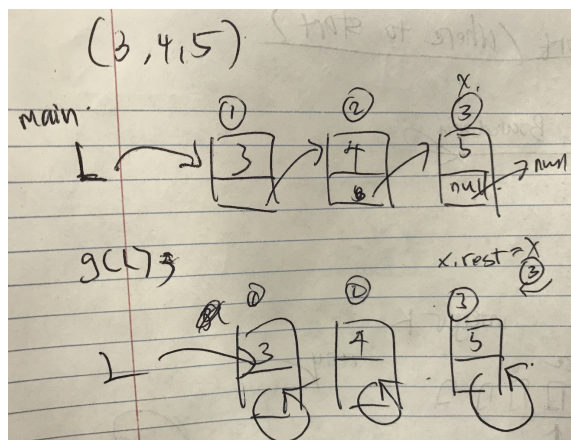 (3,4,5)
main
① ② x. ③
L 3 4 5
null null
g(L)
x.rest = x
③
① ② ③
L 3 4 5